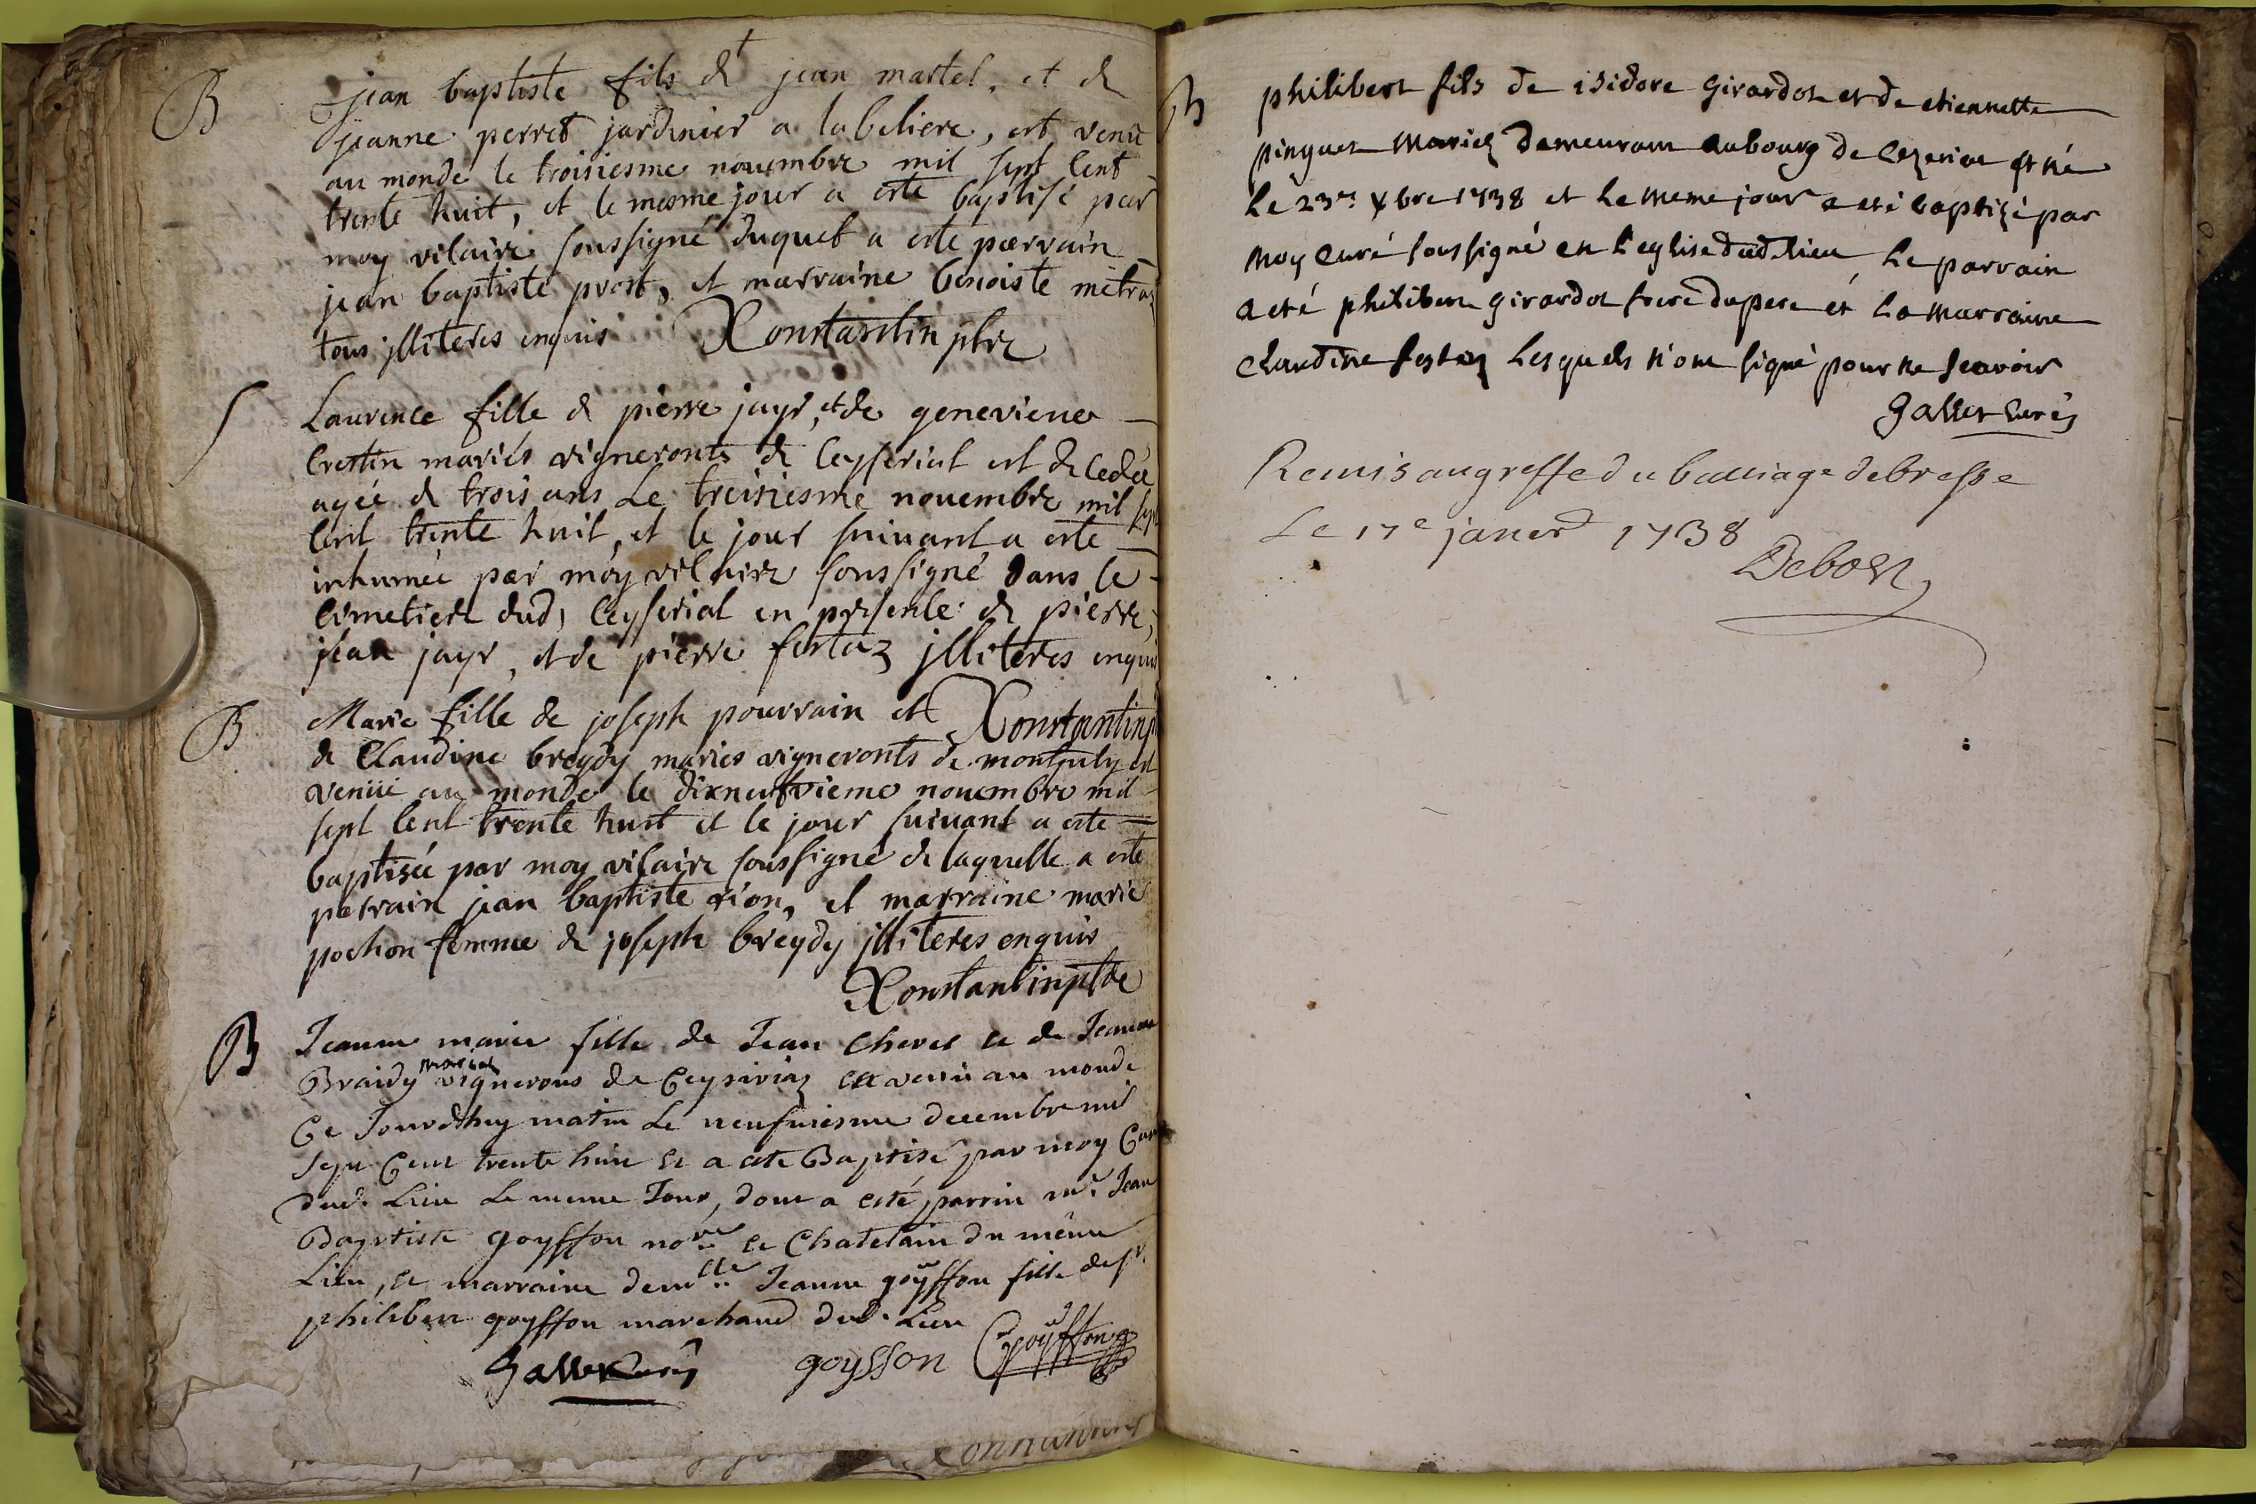 B
jean baptiste fils de jean martel, et de
jeanne perret jardinier a la beliere, est venu
au monde le troisiesme nouembre mil sept cent
trente huit, et le mesme jour a esté baptisé par
moy vicaire soussigné duquel a esté parrain
jean baptiste prost, et marraine benoiste metraz
tous jlliteres enquis Xonstantin ptre
S
Laurence fille de pierre jayr, et de genevieue
Crestin mariés vigneronts de Ceyseriat est decedée
agée de trois ans Le troisiesme nouembre mil sept
cent trente huit, et le jour suiuant a esté
inhumée par moy vicaire soussigné dans le
cimetiere dud, Ceyseriat en presence de pierre,
jean jayr, et de pierre festaz jlliteres enquis
Xonstantin
B
Marie fille de joseph pourrain et
de Claudine breydy mariés vigneronts de montjuly est
venüe au monde le dixneufvieme nouembre mil
sept cent trente huit et le jour suiuant a esté
baptisée par moy vicaire soussigné de laquelle a esté
parrain jean baptiste rion, et marraine marie
pochon femme de joseph breydy jlliteres enquis
Xonstantin ptre
B
Jeanne marie fille de Jean Chevet et de Jeanne
Braidy mariés vignerons de Ceysiriaz est venü au monde
Ce Jourdhuy matin Le neufuiesme decembre mil
Sept Cent trente huit et a este Baptisé par moy Curé
dud. Lieu Le meme Jour, dont a esté parrin mr. Jean
Baptiste goyffon nore et Chatelain du même
Lieu, et marraine demlle Jeanne goÿffon fille de sr.
philibert goyffon marchand dud. Lieu
Gallet Curé goysson Goÿffon
B
philibert fils de isidore Girardot et de etiennette
pinguet Mariez demeurant au bourg de Cezeriat est né
le 23e Xbre 1738 et le meme jour a eté baptizé par
moy Curé soussigné en l'eglise dud lieu, le parrain
a eté philibert girardot frere du pere et la marraine
Claudine festaz lesquels n'ont signé pour ne scavoir
Gallet Curé
Remis au greffe du balliage de bresse
Le 17e janer 1738
Debost